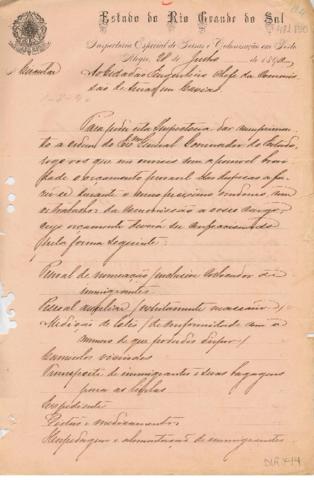 Estado do Rio Grande do Sul
Inspectoria Especial de Terras e Colonização em Porto
Alegre, 28 de Junho de 1890
Circular
Ao Cidadão Engenheiro Chefe da Commis-
são de Terras em Caxias
Para poder esta Inspectoria dar cumprimen-
to a ordem do General Governador do Estado,
rogo vos que me envieis com a possivel brevi-
dade o orçamento das despesas a fa-
zer se durante o mez proximo vindouro com
os trabalhos da Commissão a vosso cargo,
cujo orçamento deverá ser
pela forma seguinte:
Pessoal de nomeação inclusive de
immigrantes
Pessoal auxiliar (strictamente necessario)
Medição de lotes (de conformidade com o
numero de que podeis dispor)
Caminhos vicinaes
Transporte de immigrantes e suas bagagens
para os lotes
Expediente
Dietas e medicamentos
Hospedagem e alimentação de immigrantes